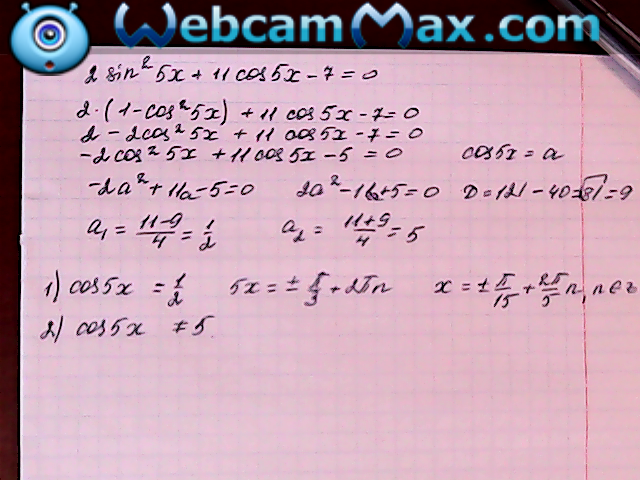 WebcamMax.com
2 sin² 5x + 11 cos 5x - 7 = 0
2·(1 - cos² 5x) + 11 cos 5x - 7 = 0
2 - 2cos² 5x + 11 cos 5x - 7 = 0
-2cos² 5x + 11 cos 5x - 5 = 0 cos 5x = a
-2a² + 11a - 5 = 0 2a² - 11a + 5 = 0 D = 121 - 40 = √81 = 9
a₁ = (11-9)/4 = 1/2 a₂ = (11+9)/4 = 5
1) cos 5x = 1/2 5x = ± π/3 + 2πn x = ± π/15 + 2π/5 n, n ∈ z
2) cos 5x ≠ 5